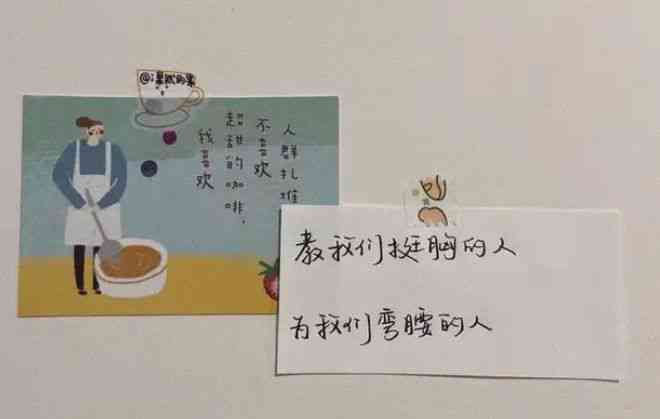 人群扎堆
不喜欢
超甜的咖啡，
我喜欢
教我们挺胸的人
为我们弯腰的人